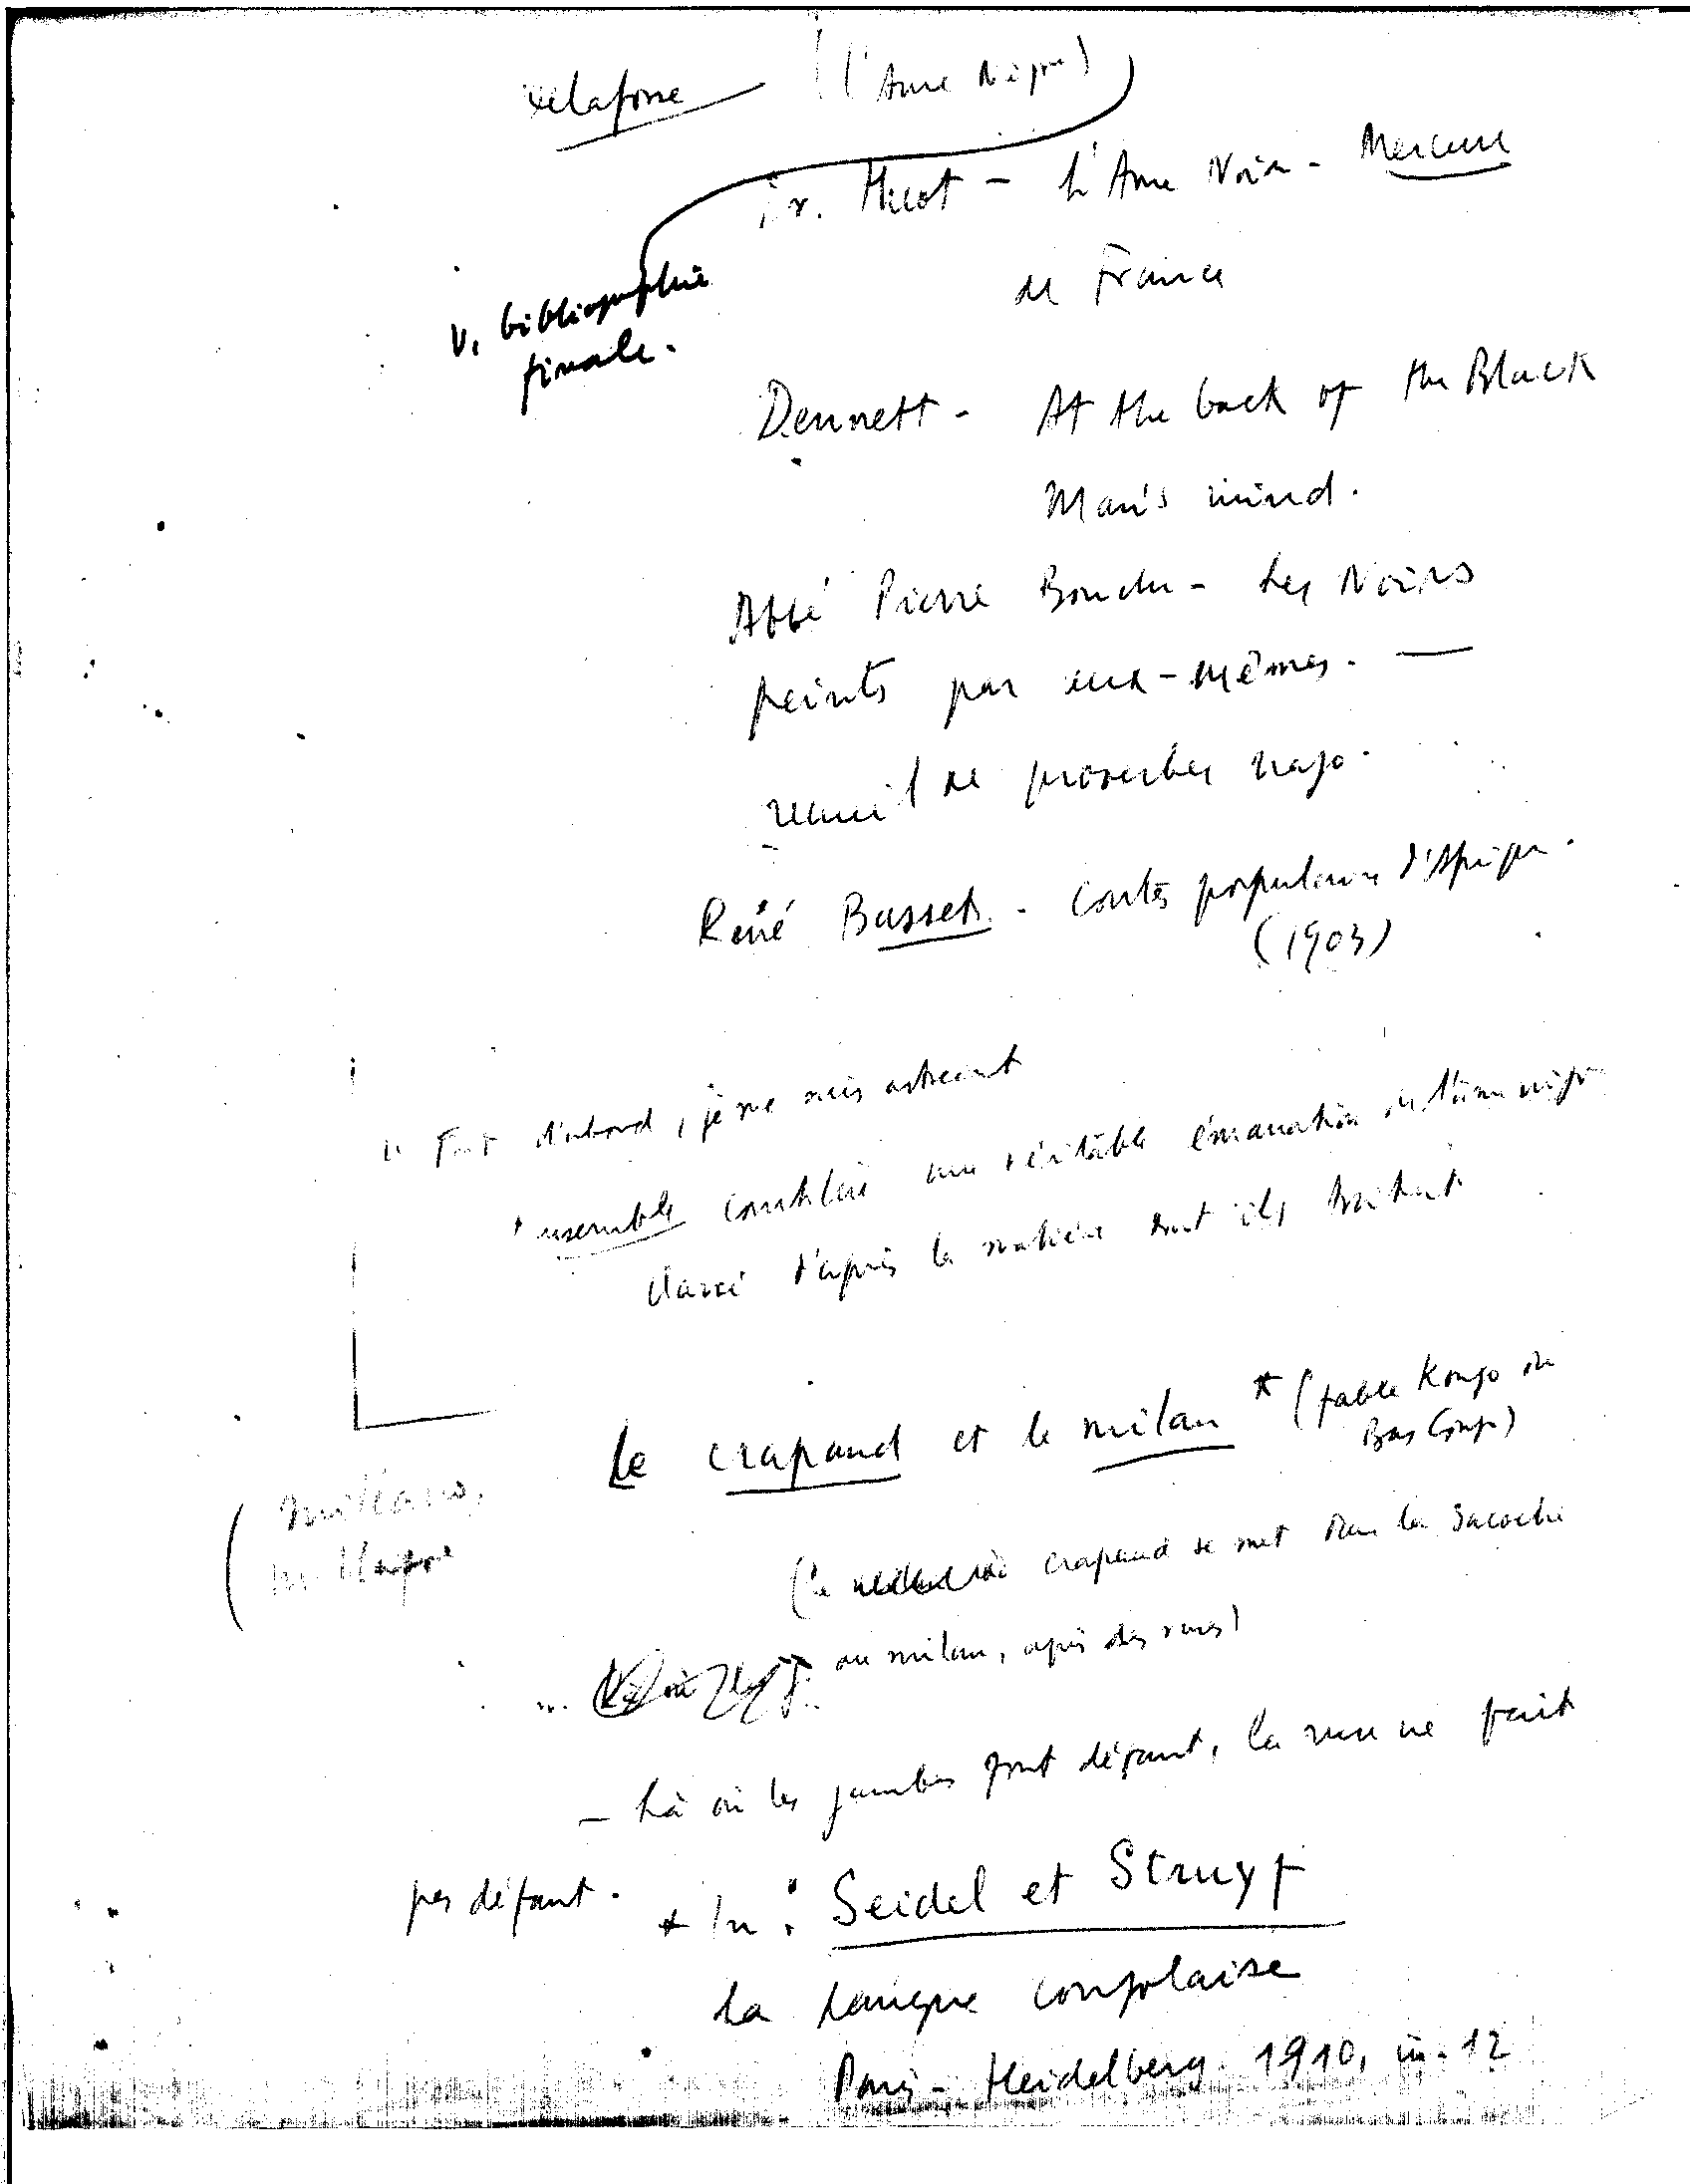 Delafosse (l'Ame Nègre)
Fr. Hicot - L'Ame Noire - Mercure
de France
V. bibliographie
finale.
Dennett - At the back of the Black
Man's mind.
Abbé Pierre Bouche - Les Noirs
peints par eux-mêmes. —
recueil de proverbes nago.
René Basset. - Contes populaires d'Afrique.
(1903)
Tout d'abord, je me suis astreint
ensemble constitue une véritable émanation de l'âme nègre
classé d'après la matière dont ils traitent
Le crapaud et le milan * (fable Kongo du
Bas Congo)
(le crapaud se met dans la sacoche
du milan, après des ruses)
- Là où les jambes font défaut, la ruse ne fait
pas défaut.
* In : Seidel et Struyf
La Langue congolaise
Paris - Heidelberg. 1910, in-12